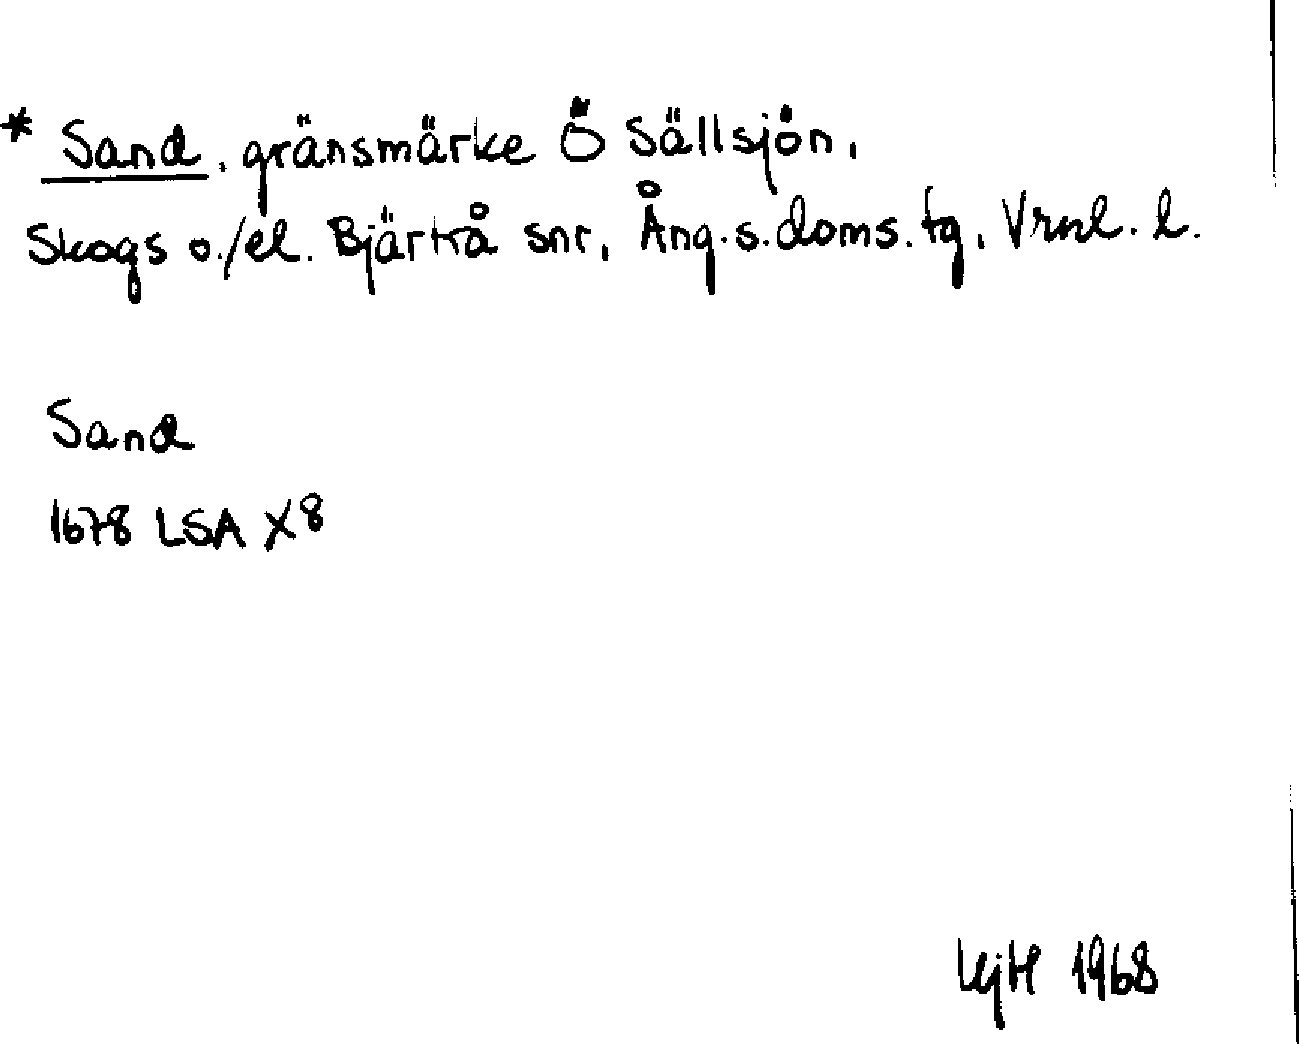 * Sand, gränsmärke Ö Sällsjön,
Skogs o./el. Bjärtrå snr, Ång.s.doms.tg, Vrnl. l.
Sand
1678 LSA X8
1968